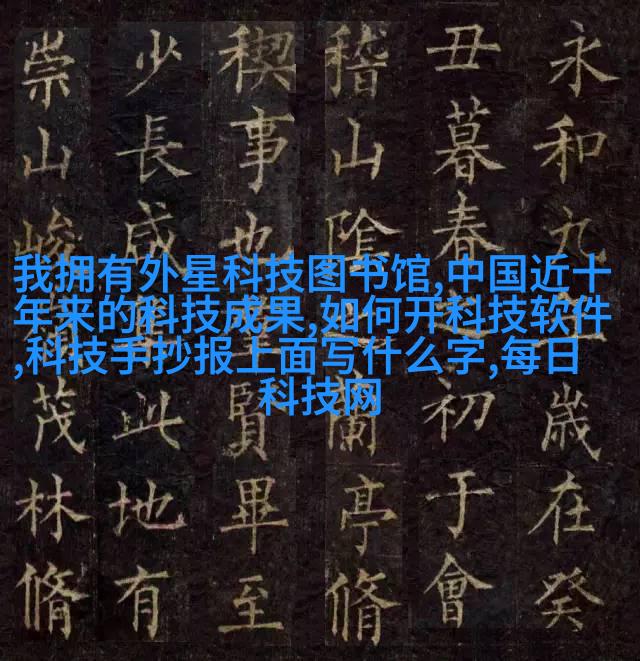 永和九年歲在癸
丑暮春之初于會
稽山陰之蘭亭脩
稧事也賢畢至
少長咸集此地有
崇山峻茂林脩
我拥有外星科技图书馆,中国近十
年来的科技成果,如何开科技软件
,科技手抄报上面写什么字,每日
科技网